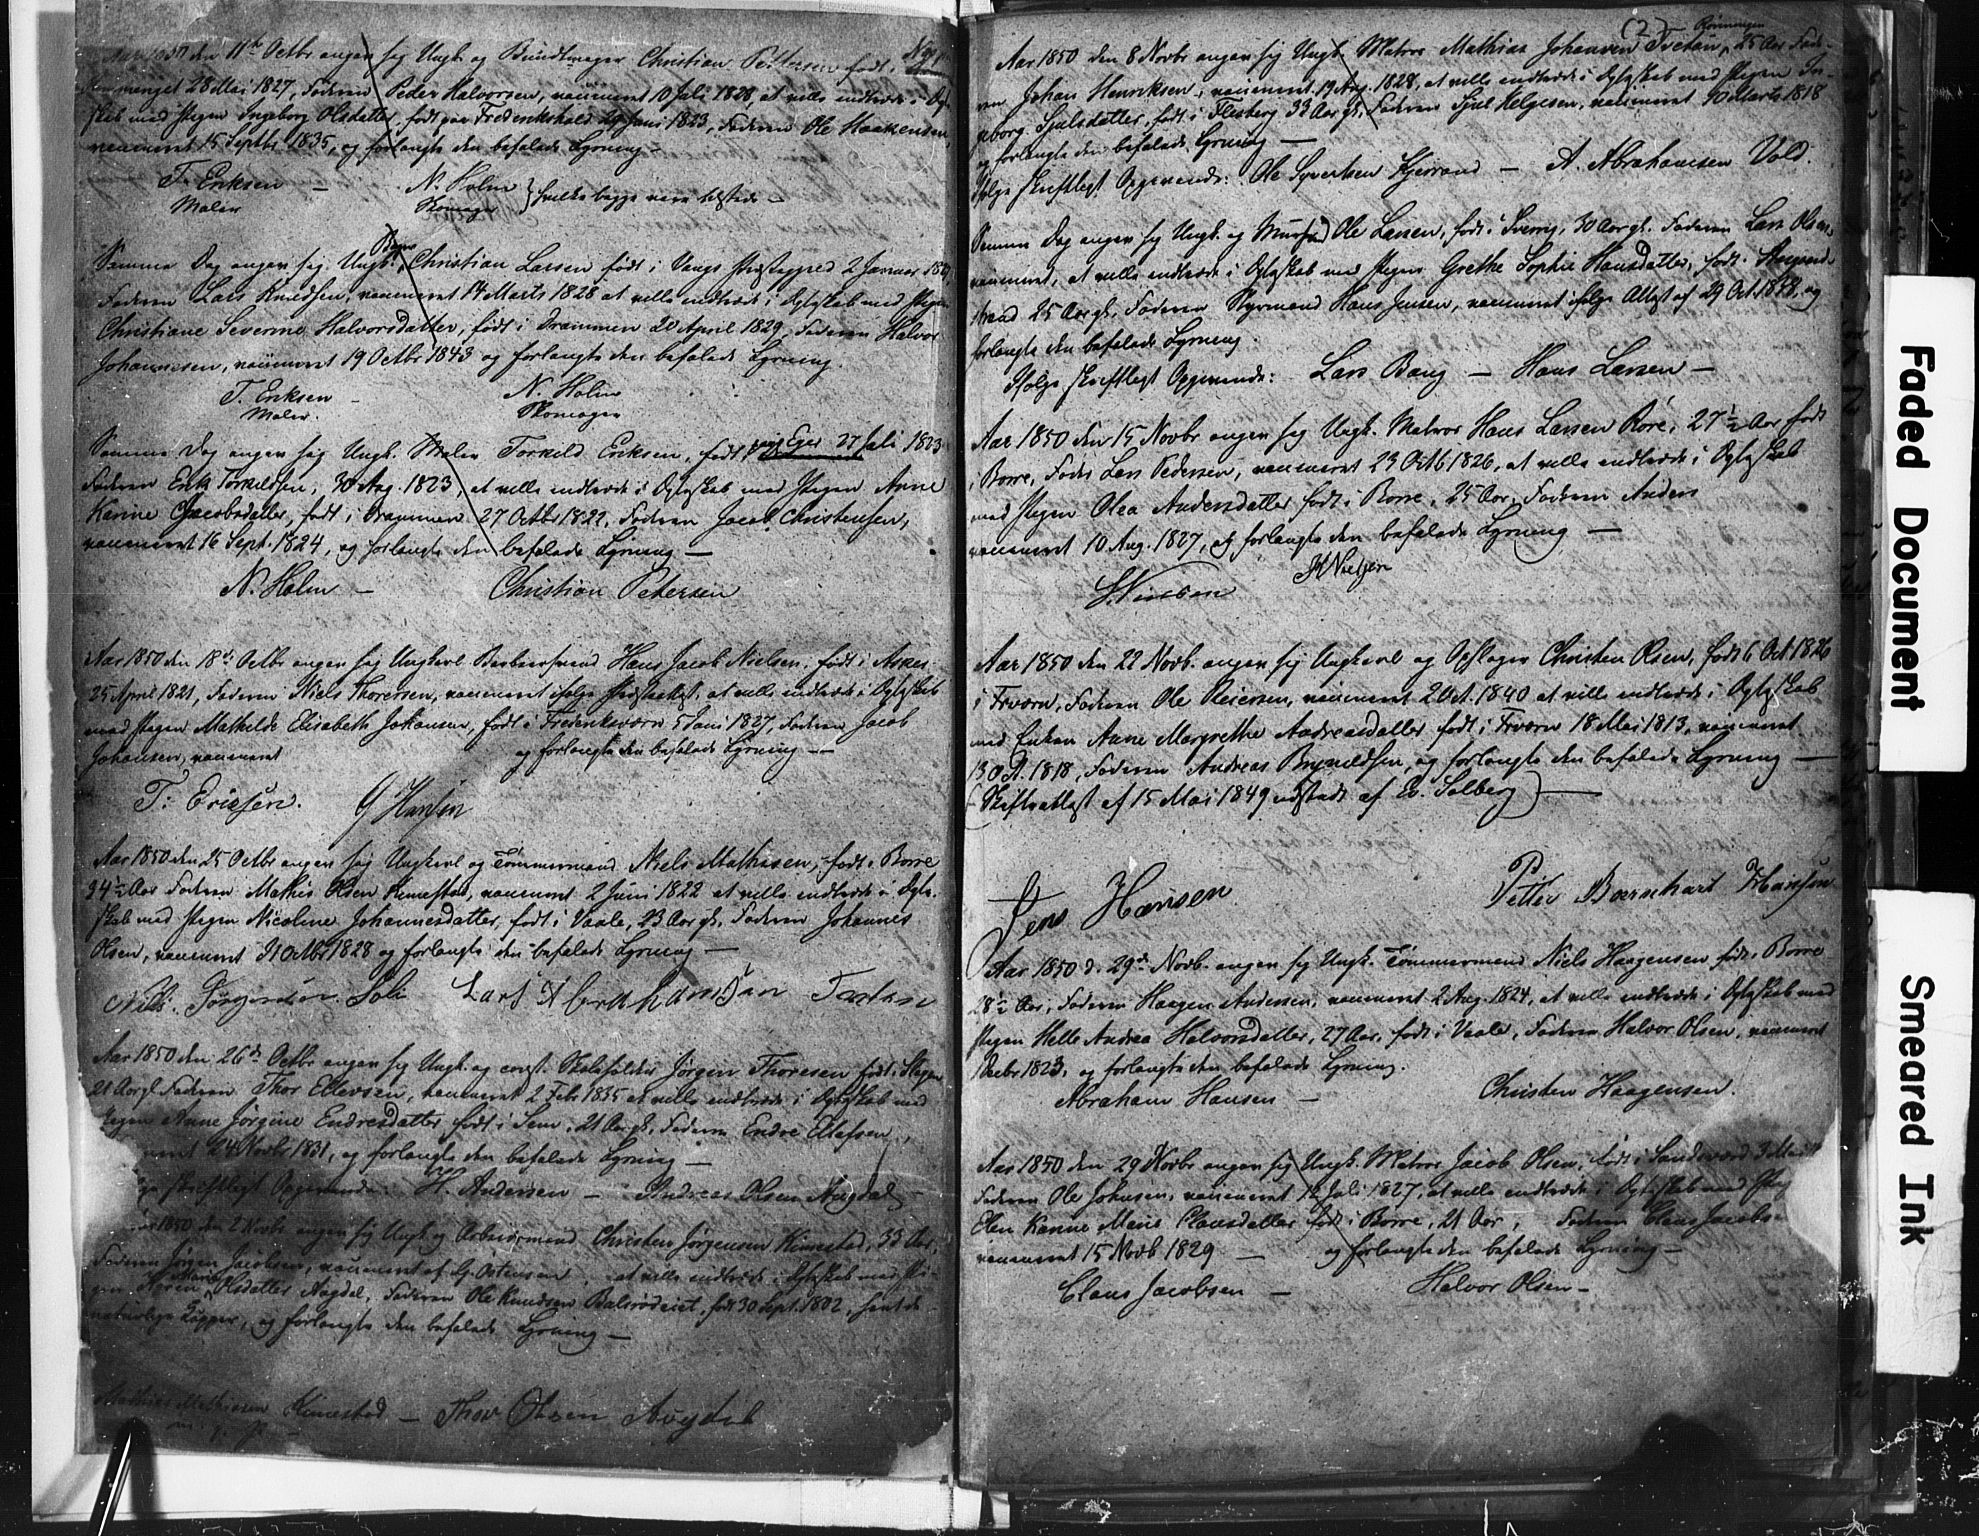 Aar 1850 den 11te Octbr angav sig Ungk. og Bundtmager Christian Pettersen født i
28 Mai 1827, Faderen Peder Halvorsen, vaccineret 10 Juli 1828, at ville indtræde i Ægte-
skab med Pigen Ingeborg Olsdatter, født paa Frederikshald 24 Juni 1823, Faderen Ole Haakensen
vaccineret 15 Septbr 1835, og forlangte den befalede Lysning —
T. Eriksen — N. Holm } hvilke begge vare tilstede —
Maler Skomager
Samme Dag angav sig Ungk. Christian Larsen født i Vangs Præstegjeld 2 Januar
Faderen Lars Knudsen, vaccineret 14 Marts 1828 at ville indtræde i Ægteskab med Pigen
Christiane Severine Halvorsdatter, født i Drammen 20 April 1829, Faderen Halvor
Johannesen, vaccineret 19 Octbr 1843 og forlangte den befalede Lysning.
T. Eriksen — N. Holm
Maler. Skomager
Samme Dag angav sig Ungk. Maler Torkild Eriksen, født paa Eger 27 Juli 1823
Faderen Erik Torkildsen, 30 Aug. 1823, at ville indtræde i Ægteskab med Pigen Anne
Karine Jacobsdatter, født i Drammen 27 Octbr 1822, Faderen Jacob Christensen,
vaccineret 16 Sept. 1824, og forlangte den befalede Lysning —
N. Holm — Christian Petersen
Aar 1850 den 18de Octbr angav sig Ungkarl Barbeersvend Hans Jacob Nielsen, født i Asker
25 April 1821, Faderen Niels Thoresen, vaccineret ifølge Præsteattest, at ville indtræde i Ægteskab
med Pigen Mathilde Elisabeth Johansen, født i Frederiksværn 5 Juni 1827, Faderen Jacob
Johansen, vaccineret og forlangte den befalede Lysning —
T: Ericksen. G Hansen
Aar 1850 den 25 Octbr angav sig Ungkarl og Tømmermand Niels Mathisen, født i Borre
34½ Aar Faderen Mathis Olsen Kimestad, vaccineret 2 Juni 1822 at ville indtræde i Ægte-
skab med Pigen Nicoline Johannesdatter, født i Vaale, 23 Aar gl. Faderen Johannes
Olsen, vaccineret 31 Octbr 1828 og forlangte den befalede Lysning —
Niels Jørgensen Lars Abrahamsan
Aar 1850 den 26de Octbr angav sig Ungk. og const. Jørgen Thoresen født i Slagen
21 Aar gl. Faderen Thor Ellevsen, vaccineret 2 Febr 1835 at ville indtræde i Ægteskab med
Pigen Anne Jørgine Endresdatter født i Sem, 21 Aar gl. Faderen Endre Ellefsen,
24 Novbr 1831, og forlangte den befalede Lysning —
skriftligt Opgivende: H. Andersen — Andreas Olsen Augdal —
1850 den 2 Novbr angav sig Ungk. og Arbeidsmand Christen Jørgensen Kimestad, 33 Aar,
Faderen Jørgen Jacobsen, vaccineret af G. Østensen, at ville indtræde i Ægteskab med Pi-
gen Karen Marie Olsdatter Augdal, Faderen Ole Knudsen Balsrødeiet, født 30 Sept. 1802, havt de
naturlige Kopper, og forlangte den befalede Lysning —
Mathias Mathiasen Kimestad — Thor Olsen Augdal
(2)
Aar 1850 den 8 Novbr angav sig Ungk. Matros Mathias Johansen Tvetan, 25 Aar Fade-
ren Johan Henriksen, vaccineret 19 Aug. 1828, at ville indtræde i Ægteskab med Pigen In-
geborg Sjulsdatter, født i Flesberg 33 Aar gl., Faderen Sjul Helgesen, vaccineret 30 Marts 1818
og forlangte den befalede Lysning —
Ifølge skriftligt Opgivende: Ole Syvertsen — A. Abrahamsen Vold.
Samme Dag angav sig Ungk. og Ole Larsen, født i Sverrig, 30 Aar gl. Faderen Lars Olsen,
vaccineret, at ville indtræde i Ægteskab med Pigen Grethe Sophie Hansdatter, født i Aasgaard-
strand 25 Aar gl. Faderen Styrmand Hans Jensen, vaccineret ifølge Attest af 29 Oct. 1848, og
forlangte den befalede Lysning.
Ifølge skriftligt Opgivende: Lars Bang — Hans Larsen —
Aar 1850 den 15 Novbr angav sig Ungk. Matros Hans Larsen Røre, 27½ Aar født
i Borre, Fader Lars Pedersen, vaccineret 23 Octb 1826, at ville indtræde i Ægteskab
med Pigen Olea Andersdatter født i Borre, 25 Aar, Faderen Anders
vaccineret 10 Aug. 1827, og forlangte den befalede Lysning —
Nielsen
Aar 1850 den 22 Novb. angav sig Ungkarl og Opslager Christen Olsen, født 6 Oct. 1826
i Frværn, Faderen Ole Reiersen, vaccineret 2 Oct. 1840 at ville indtræde i Ægteskab
med Enken Anne Margrethe Andreasdatter født i Frværn 18 Mai 1813, vaccineret
13 Oct. 1818, Faderen Andreas Brynildsen, og forlangte den befalede Lysning —
(Skifteattest af 15 Mai 1849 udstedt af Ev. Solberg) —
Jens Hansen Petter Bærnhart Hansen
Aar 1850 d. 29de Novb. angav sig Ungk. Tømmermand Niels Haagensen født i Borre
28½ Aar, Faderen Haagen Andersen, vaccineret 2 Aug. 1824, at ville indtræde i Ægteskab med
Pigen Helle Andrea Halvorsdatter, 27 Aar, født i Vaale, Faderen Halvor Olsen, vaccineret
1823, og forlangte den befalede Lysning.
Abraham Hansen — Christen Haagensen.
Aar 1850 den 29 Novbr angav sig Ungk. Matros Jacob Olsen, født i Sandsværd 3 Mai
Faderen Ole Johnsen, vaccineret 12 Juli 1827, at ville indtræde i Ægteskab med Pig
Elen Karine Marie Clausdatter født i Borre, 21 Aar, Faderen Claus Jacobs
vaccineret 15 Novb 1829 — og forlangte den befalede Lysning —
Claus Jacobsen — Halvor Olsen —
Faded Document
Smeared Ink